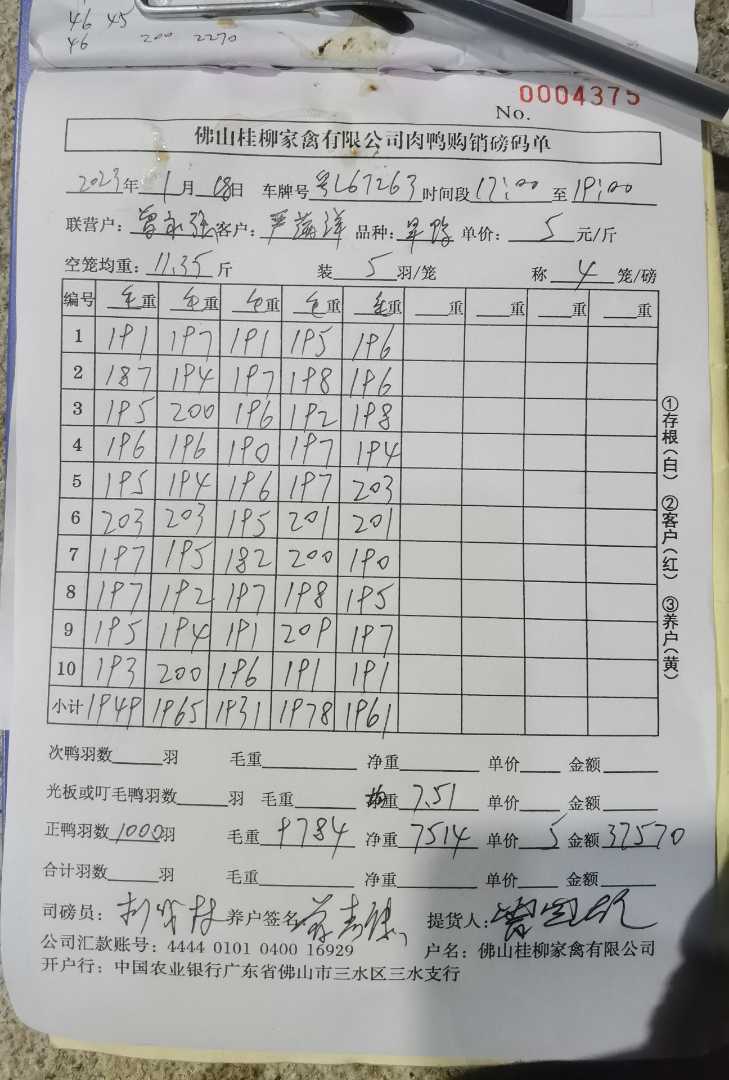 46 45
46 200 2270
No. 0004375
佛山桂柳家禽有限公司肉鸭购销磅码单
2023年 1月 18日 车牌号 粤L67263 时间段 17:00 至 19:00
联营户: 曾永强 客户: 严 洋 品种: 单价: 5 元/斤
空笼均重: 11.35 斤 装 5 羽/笼 称 4 笼/磅
编号 毛重 毛重 毛重 毛重 毛重 重 重 重 重
1 191 197 191 195 196
2 187 194 197 198 196
3 195 200 196 192 198
4 196 196 190 197 194
5 195 194 196 197 203
6 203 203 195 201 201
7 197 195 182 200 190
8 197 192 197 198 195
9 195 194 191 209 197
10 193 200 196 191 191
小计 1949 1965 1931 1978 1961
①存根(白) ②客户(红) ③养户(黄)
次鸭羽数 羽 毛重 净重 单价 金额
光板或叮毛鸭羽数 羽 毛重 均重 7.51 单价 金额
正鸭羽数 1000羽 毛重 9784 净重 7514 单价 5 金额 37570
合计羽数 羽 毛重 净重 单价 金额
司磅员: 养户签名 提货人:
公司汇款账号: 4444 0101 0400 16929 户名: 佛山桂柳家禽有限公司
开户行: 中国农业银行广东省佛山市三水区三水支行